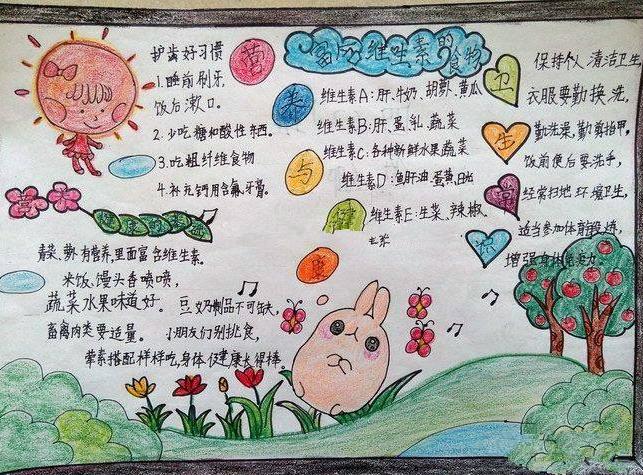 护齿好习惯
1.睡前刷牙
饭后漱口。
2.少吃糖和酸性东西。
3.吃粗纤维食物
4.补充钙用含氟牙膏。
营
养
与
健
康
维生素的食物
维生素A:肝、牛奶、胡萝、黄瓜
维生素B:肝、蛋、乳、蔬菜
维生素C:各种新鲜水果蔬菜
维生素D:鱼肝油、蛋黄、日出
维生素E:生菜、辣椒、
玉米
卫
生
常
识
保持个人清洁卫生,
衣服要勤换洗,
勤洗澡、勤剪指甲,
饭前便后要洗手,
经常扫地环境卫生,
适当参加体育锻炼,
增强身体免疫力
营
青菜、萝有营养,里面富含维生素。
米饭、馒头香喷喷,
蔬菜水果味道好。豆奶制品不可缺,
畜禽肉类要适量。小朋友们别挑食,
荤素搭配样样吃,身体健康长得棒。